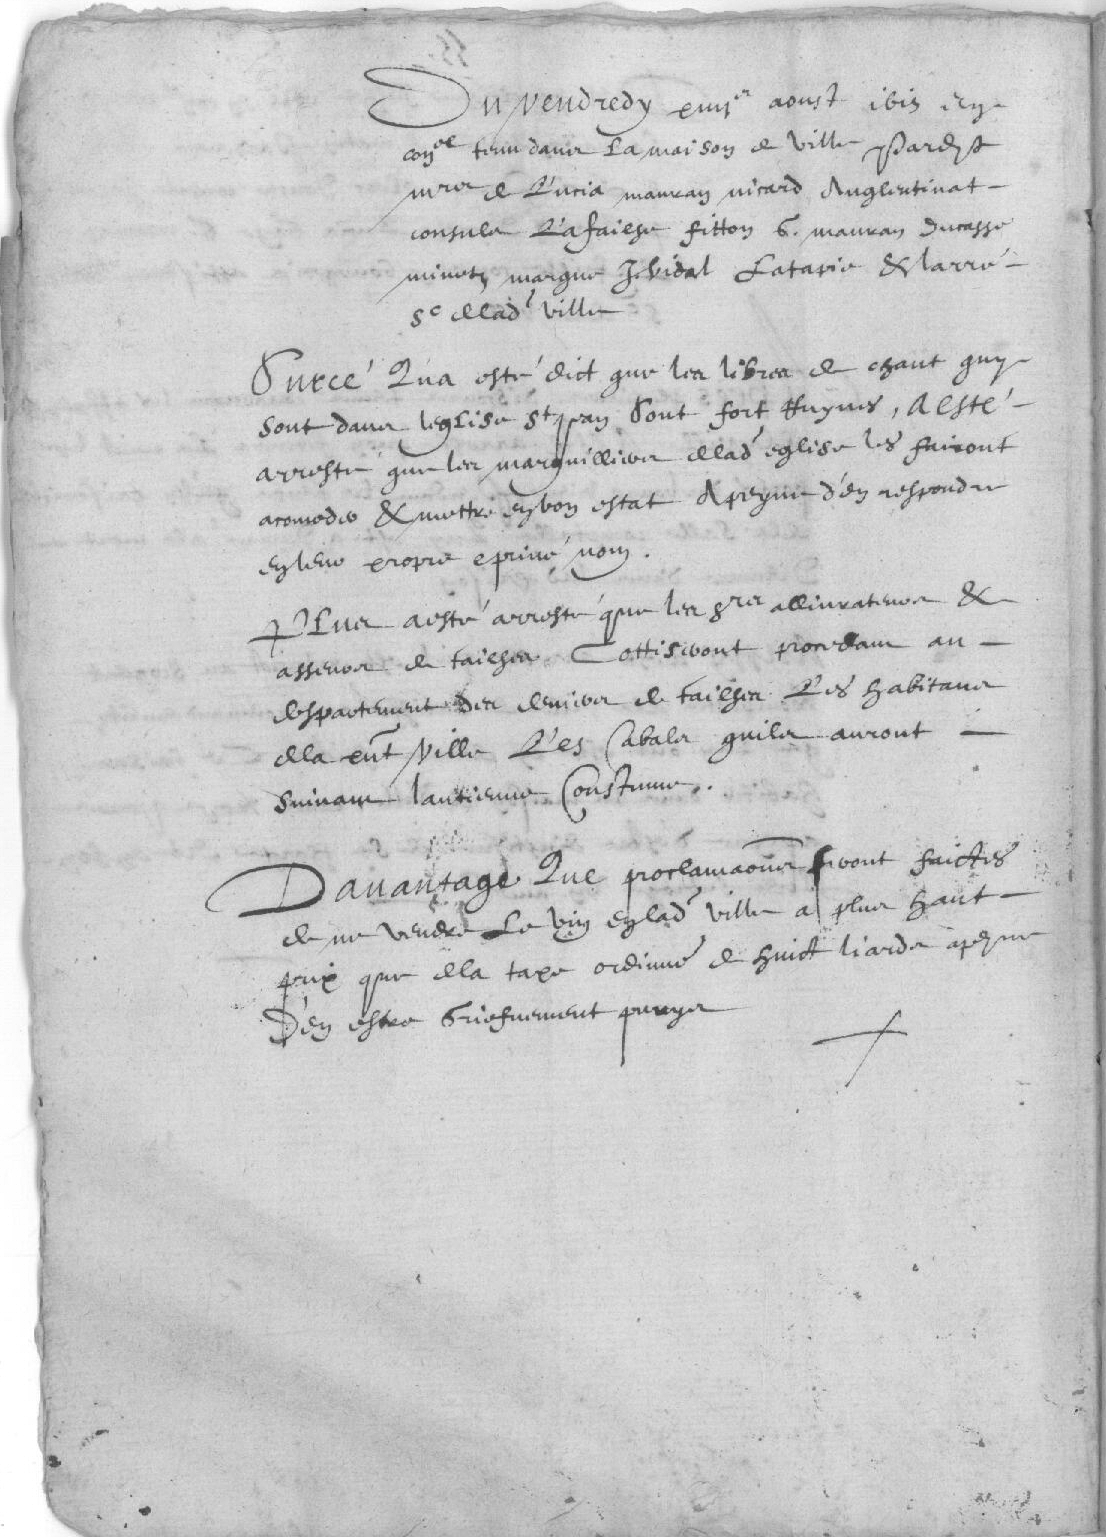 Du vendredy aoust en
con^el tenu dans La maison de ville Par
m^res de Lucia mauran nicard Anglentinat
consulz Lafailhe fitton G. mauran Ducasse
minetz margue Jehidal Latapie & larré
s^e de lad^e ville
Surcé Qua esté dict que les libres de chant quy
sont dans leglise S^t Jean Sont fort Ruynes, A esté
arresté que les marguilliers de lad^e eglise les fairont
acomoder & mettre en bon estat A peyne d'en respondre
en leur propre e privé nom.
Plus a esté arresté que les s^rs allivrateurs &
asseurs de tailhes Cottiseront procedant au
despartement des deniers de tailhes Les habitans
de la p^nt ville Les Cabals quilz auront
suivant lantienne Coustume.
Davantage Que proclama^ons seront faictes
de ne vendre Le vin en lad^e ville a plus hault
prix que de la taxe ordinre de huict liardz a peyne
D'en estre Griefvement punys